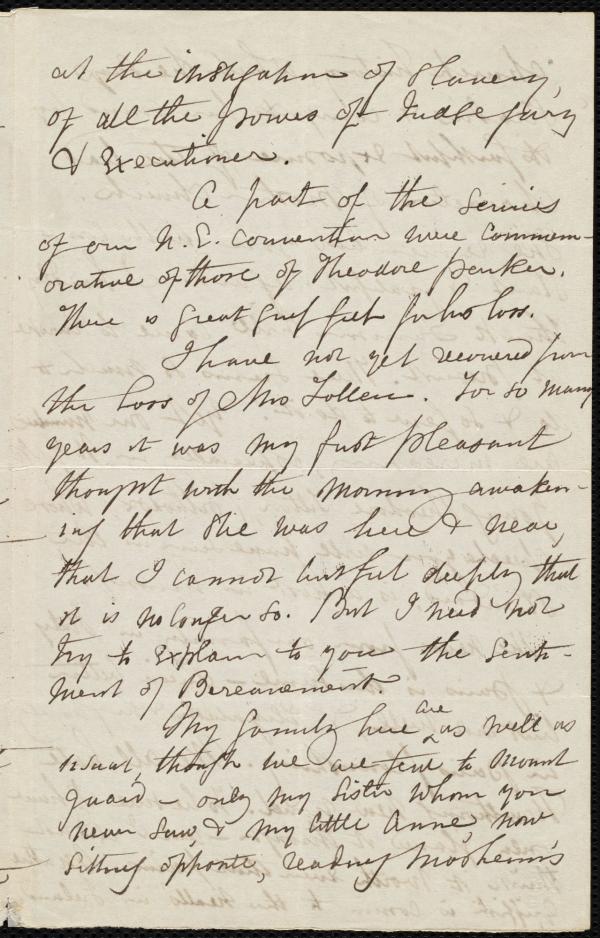 at the instigation of Slavery,
of all the powers of Judge jury
& Executioner.
A part of the services
of our N. E. Convention were Commem-
orative of those of Theodore Parker.
There is great grief felt for his loss.
I have not yet recovered from
the loss of Mrs Follen. For so many
years it was my first pleasant
thought with the morning awaken-
ing that she was here & near,
that I cannot but feel deeply that
it is no longer so. But I need not
try to explain to you the Senti-
ment of Bereavement.
My family here are as well as
usual, though we are few to mount
guard - only my Sister whom you
never saw, & my little Anne, now
sitting opposite, reading Mosheim's